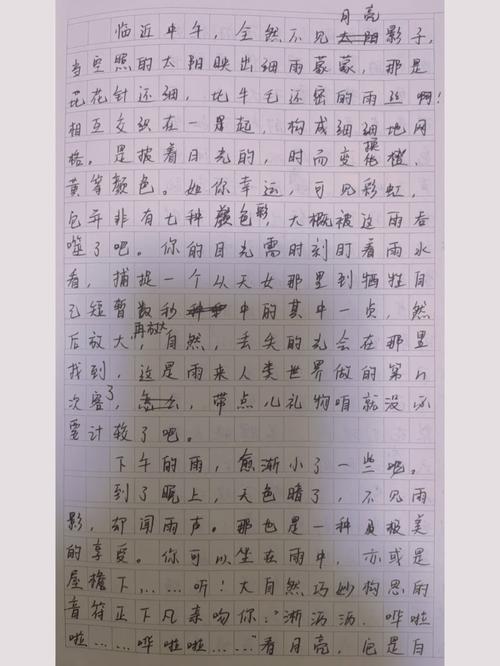 临近中午，全然不见月亮影子，
当空照的太阳映出细雨蒙蒙，那是
比花针还细，比牛毛还密的雨丝啊！
相互交织在一起，构成细细地网
格。是披着日光的，时而变换橙、
黄等颜色。如你幸运，可见彩虹，
它并非有七种色彩，大概被这雨吞
噬了吧。你的目光需时刻盯着雨水
看，捕捉一个从天女那里到牺牲自
己短暂数秒中的其中一点，然
后放大，再放大，自然，丢失的光会在那里
找到，这是雨来人类世界做的第n
次客了，带点儿礼物咱就没必
要计较了吧。
下午的雨，愈渐小了一些呢。
到了晚上，天色暗了，不见雨
影，却闻雨声。那也是一种极美
的享受。你可以坐在雨中，亦或是
屋檐下，……听！大自然巧妙构思的
音符正下凡亲吻你：淅沥沥，哗啦
啦……哗啦啦……看月亮，它是自